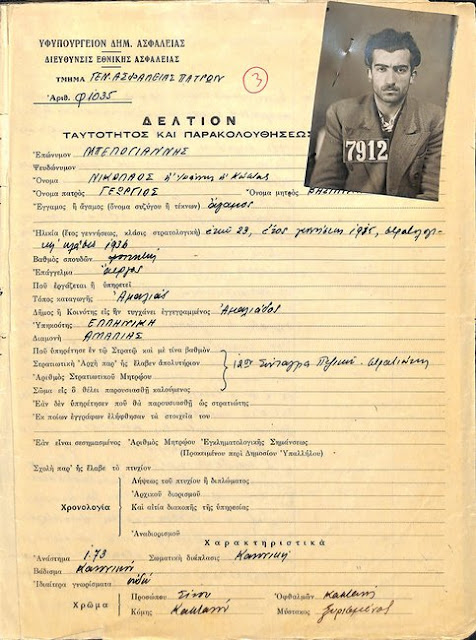 ΥΦΥΠΟΥΡΓΕΙΟΝ ΔΗΜ. ΑΣΦΑΛΕΙΑΣ
ΔΙΕΥΘΥΝΣΙΣ ΕΘΝΙΚΗΣ ΑΣΦΑΛΕΙΑΣ
ΤΜΗΜΑ ΓΕΝ. ΑΣΦΑΛΕΙΑΣ ΠΑΤΡΩΝ
Ἀριθ. φ1035
3
7912
ΔΕΛΤΙΟΝ
ΤΑΥΤΟΤΗΤΟΣ ΚΑΙ ΠΑΡΑΚΟΛΟΥΘΗΣΕΩΣ
Ἐπώνυμον ΜΠΕΛΟΓΙΑΝΝΗΣ
Ψευδώνυμον
Ὄνομα ΝΙΚΟΛΑΟΣ ἢ ἢ Κώστας
Ὄνομα πατρὸς ΓΕΩΡΓΙΟΣ Ὄνομα μητρὸς
Ἔγγαμος ἢ ἄγαμος (ὄνομα συζύγου ἢ τέκνων) ἄγαμος
Ἡλικία (ἔτος γεννήσεως, κλάσις στρατολογικὴ) ἐτῶν 23, ἔτος γεννήσεως 1915,
κλάσις 1936
Βαθμὸς σπουδῶν
Ἐπάγγελμα ἄεργος
Ποῦ ἐργάζεται ἢ ὑπηρετεῖ
Τόπος καταγωγῆς Ἀμαλιὰς
Δῆμος ἢ Κοινότης εἰς ἣν τυγχάνει ἐγγεγραμμένος Ἀμαλιάδος
Ὑπηκοότης ΕΛΛΗΝΙΚΗ
Διαμονὴ ΑΜΑΛΙΑΣ
Ποῦ ὑπηρέτησε ἐν τῷ Στρατῷ καὶ μὲ τίνα βαθμὸν
Στρατιωτικὴ Ἀρχὴ παρ' ἧς ἔλαβεν ἀπολυτήριον
12ον Σύνταγμα Πεζικοῦ - στρατιώτης
Ἀριθμὸς Στρατιωτικοῦ Μητρώου
Σῶμα εἰς ὃ θέλει παρουσιασθῆ καλούμενος
Ἐὰν δὲν ὑπηρέτησεν ποῦ θὰ παρουσιασθῆ ὡς στρατιώτης
Ἐκ ποίων ἐγγράφων ἐλήφθησαν τὰ στοιχεῖα του
Ἐὰν εἶναι σεσημασμένος Ἀριθμὸς Μητρώου Ἐγκληματολογικῆς Σημάνσεως
(Προκειμένου περὶ Δημοσίου Ὑπαλλήλου)
Σχολὴ παρ' ἧς ἔλαβε τὸ πτυχίον
Λήψεως τοῦ πτυχίου ἢ διπλώματος
Ἀρχικοῦ διορισμοῦ
Χρονολογία
Καὶ αἰτία διακοπῆς τῆς ὑπηρεσίας
Ἀναδιορισμοῦ
Χαρακτηριστικὰ
Ἀνάστημα 1.73 Σωματικὴ διάπλασις Κανονική
Βάδισμα Κανονικόν
Ἰδιαίτερα γνωρίσματα οὐδέν
Χρῶμα
Προσώπου Ὀφθαλμῶν Καστανοί
Κόμης Καστανή Μύστακος ξυρισμένος